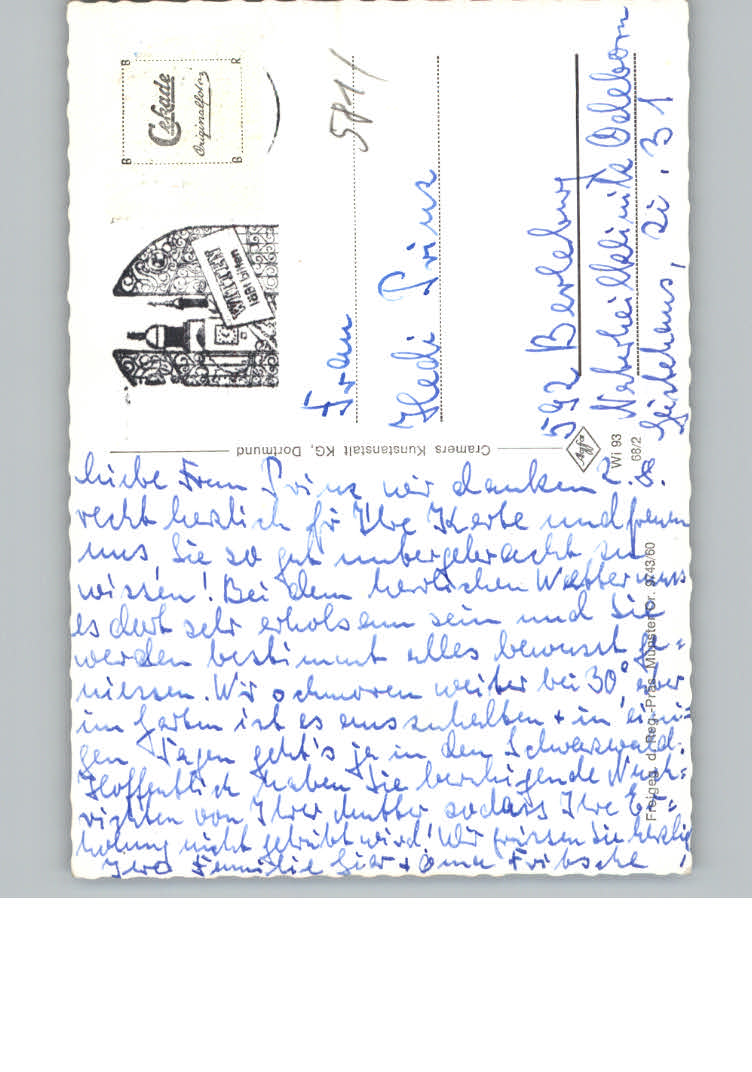 Liebe Frau Prinz wir danken
recht herzlich für Ihre Karte und freuen
uns, Sie so gut untergebracht zu
wissen! Bei dem herrlichen Wetter muss
es dort sehr erholsam sein und Sie
werden bestimmt alles bewusst ge=
niessen. Wir schmoren weiter bei 30°, aber
im Garten ist es auszuhalten + in eini=
gen Tagen geht's ja in den Schwarzwald.
Hoffentlich haben Sie beruhigende Nach=
richten von Ihrer Mutter sodass Ihre Er=
holung nicht getrübt wird! Wir grüssen Sie herzlich
Ihre Familie + Oma Fritsche
Cramers Kunstanstalt KG, Dortmund
Agfa
Wi 93
68/2
Freigeg. d. Reg.-Präs. Münster Nr. 9743/60
B B
Cekade
Originalfoto
B R
58 Witten
5811
Frau
Hedi Prinz
592 Berleburg
Naturheilklinik Odeborn
Gästehaus, Zi. 31